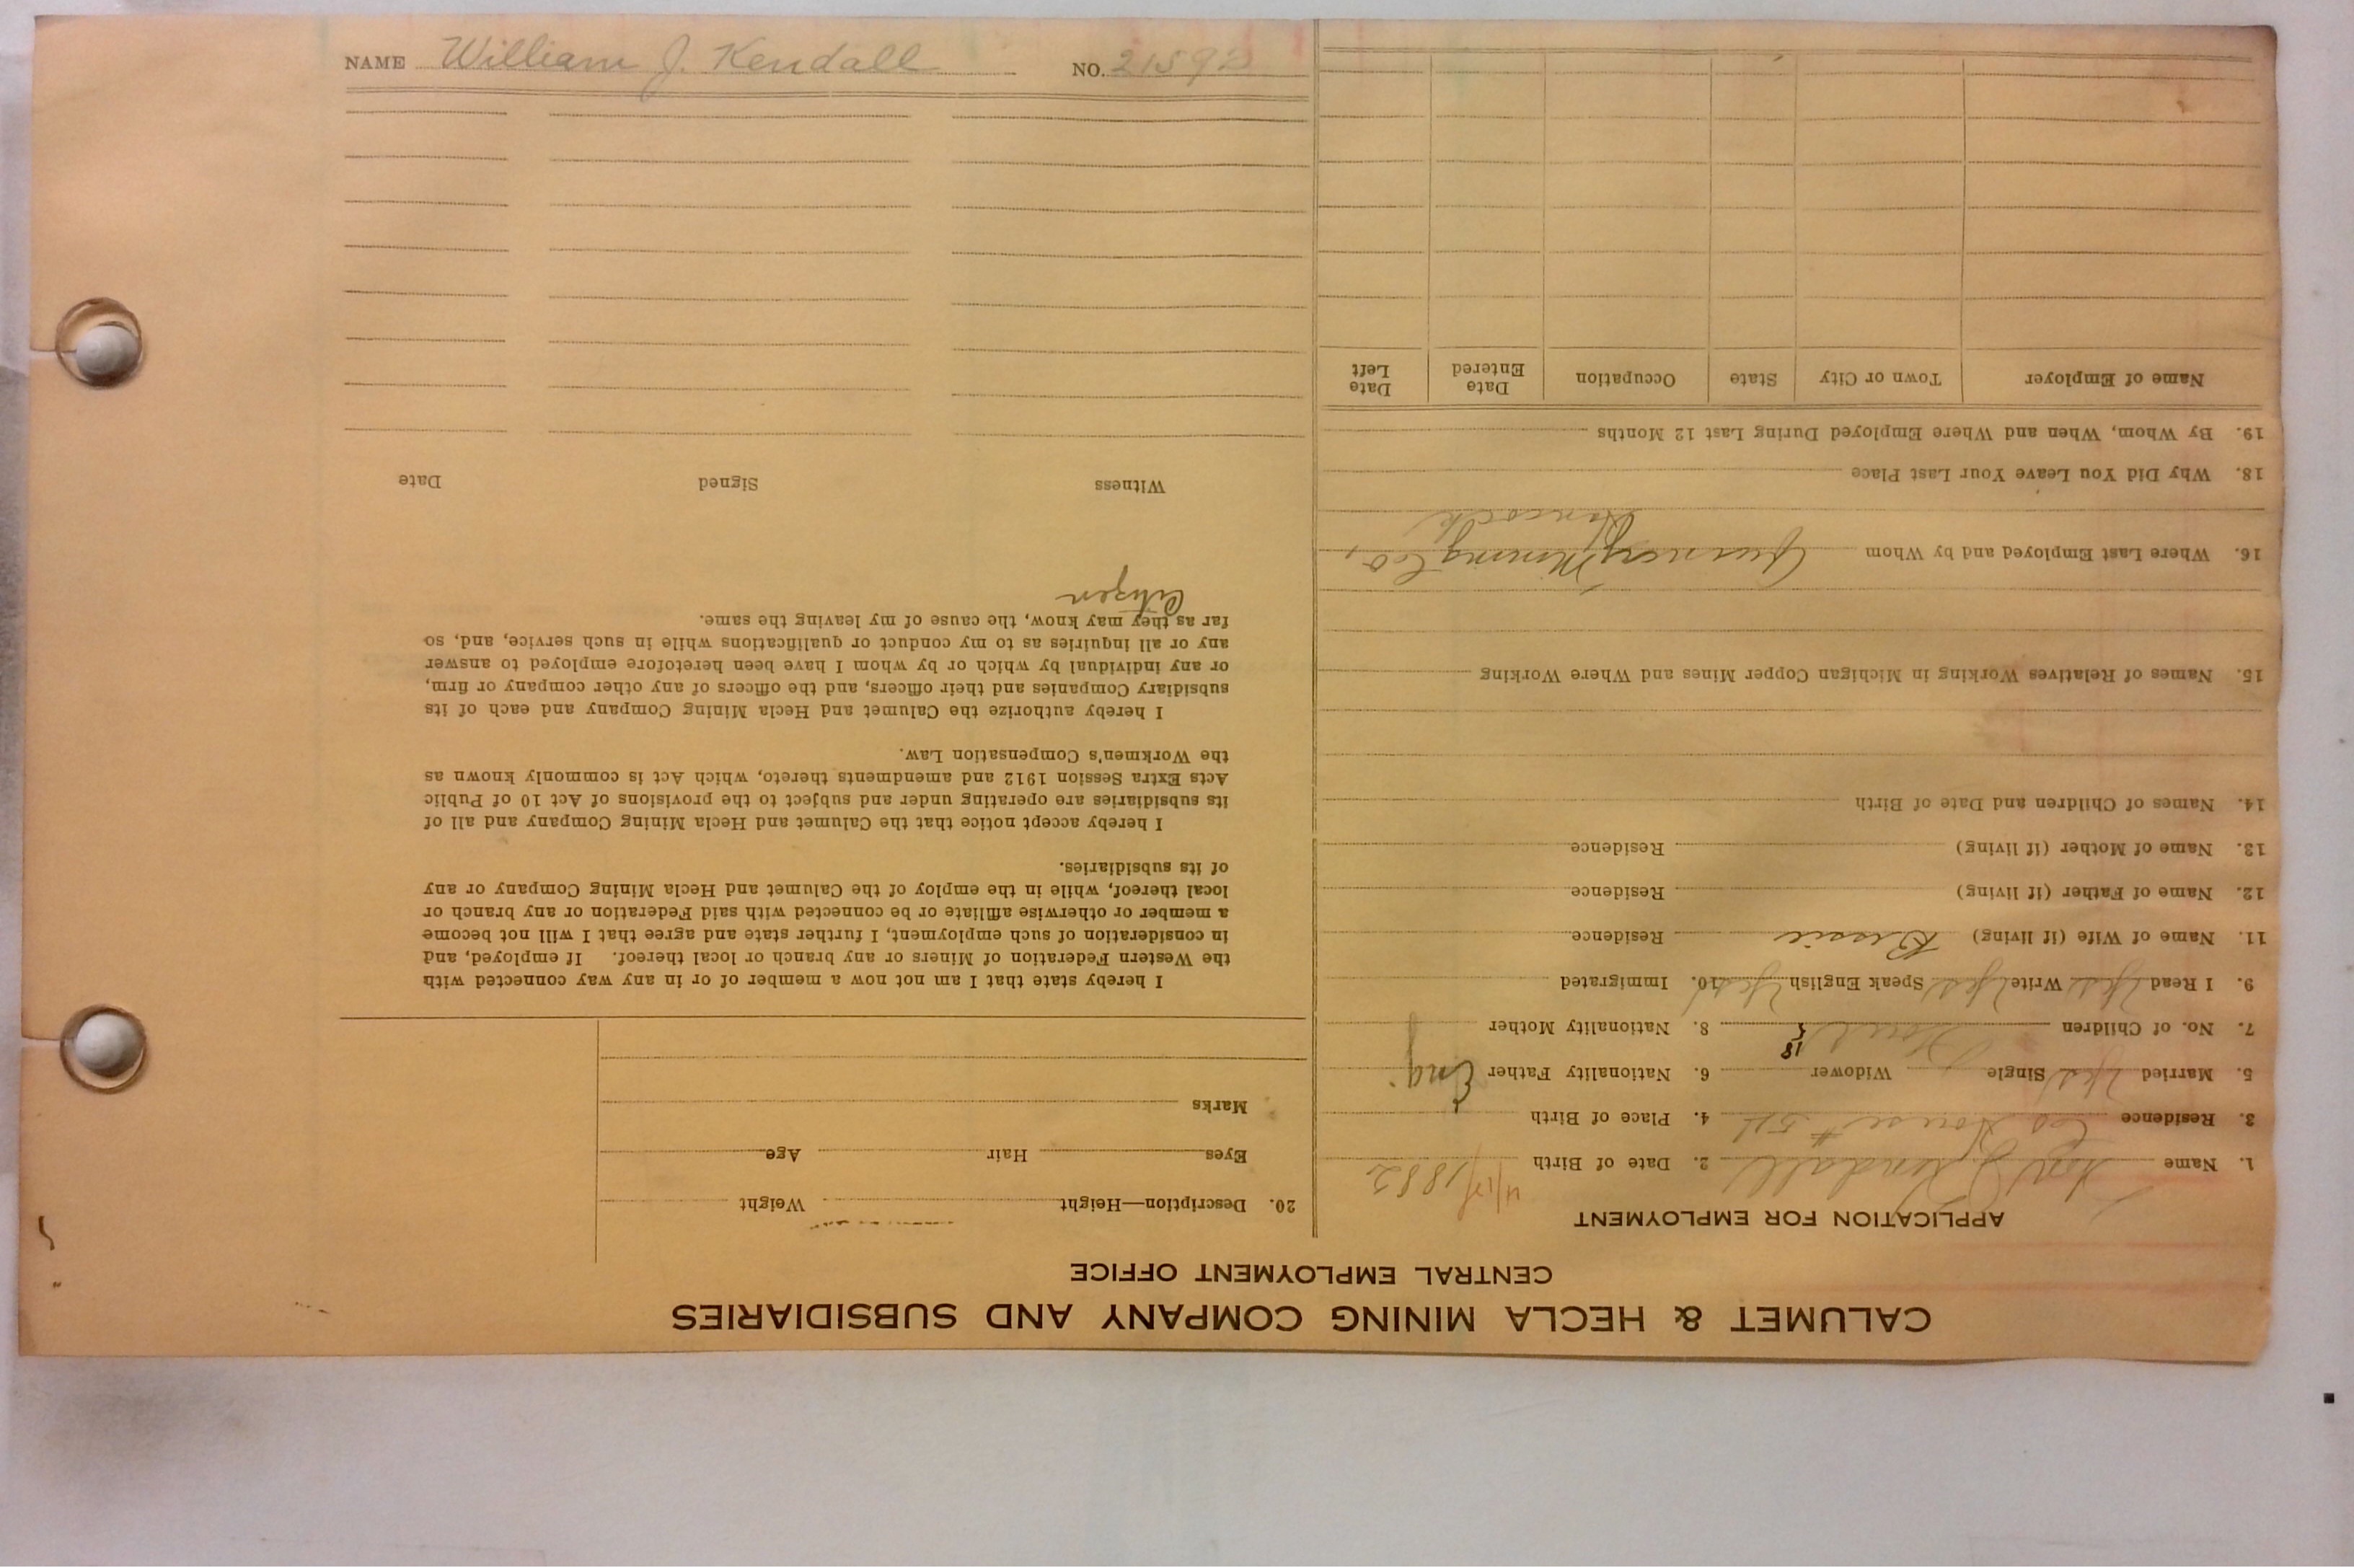 CALUMET & HECLA MINING COMPANY AND SUBSIDIARIES
CENTRAL EMPLOYMENT OFFICE
APPLICATION FOR EMPLOYMENT
1. Name Wm J Kendall 2. Date of Birth 4/17/1882
3. Residence Co House # 4. Place of Birth
5. Married Yes Single Widower 6. Nationality Father Eng
18
7. No. of Children 8. Nationality Mother
9. I Read Yes Write Yes Speak English Yes 10. Immigrated
11. Name of Wife (if living) Bessie Residence
12. Name of Father (if living) Residence
13. Name of Mother (if living) Residence
14. Names of Children and Date of Birth
15. Names of Relatives Working in Michigan Copper Mines and Where Working
16. Where Last Employed and by Whom Quincy Mining Co,
Hancock
18. Why Did You Leave Your Last Place
19. By Whom, When and Where Employed During Last 12 Months
Name of Employer Town or City State Occupation Date Entered Date Left
20. Description—Height Weight
Eyes Hair Age
Marks
I hereby state that I am not now a member of or in any way connected with
the Western Federation of Miners or any branch or local thereof. If employed, and
in consideration of such employment, I further state and agree that I will not become
a member or otherwise affiliate or be connected with said Federation or any branch or
local thereof, while in the employ of the Calumet and Hecla Mining Company or any
of its subsidiaries.
I hereby accept notice that the Calumet and Hecla Mining Company and all of
its subsidiaries are operating under and subject to the provisions of Act 10 of Public
Acts Extra Session 1912 and amendments thereto, which Act is commonly known as
the Workmen's Compensation Law.
I hereby authorize the Calumet and Hecla Mining Company and each of its
subsidiary Companies and their officers, and the officers of any other company or firm,
or any individual by which or by whom I have been heretofore employed to answer
any or all inquiries as to my conduct or qualifications while in such service, and, so
far as they may know, the cause of my leaving the same.
Citizen
Witness Signed Date
NAME William J. Kendall NO. 21592